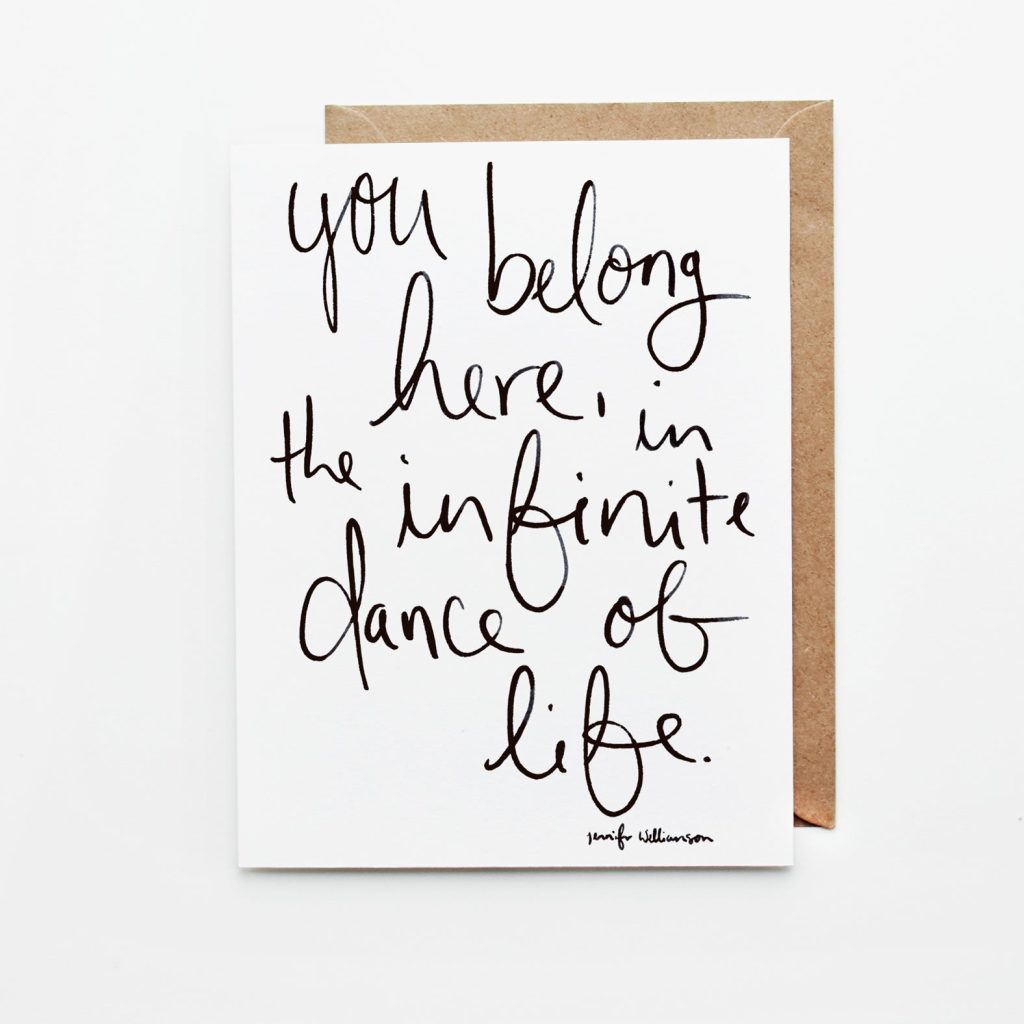 you belong
here, in
the infinite
dance of
life.
Jennifr Williamson